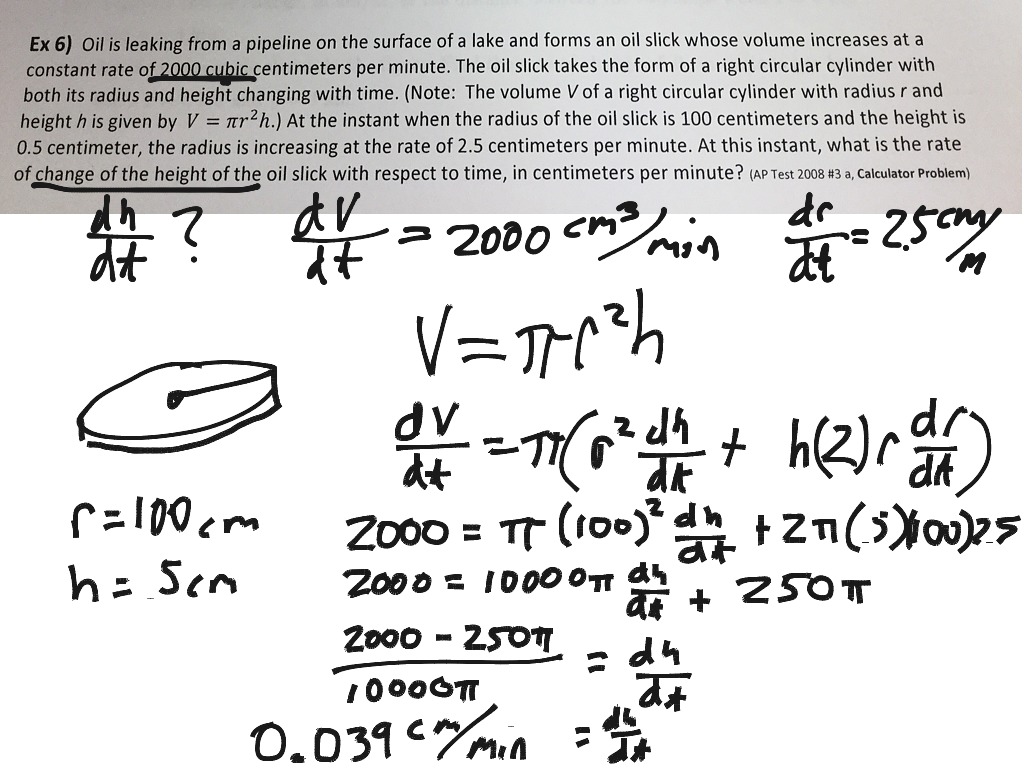 Ex 6) Oil is leaking from a pipeline on the surface of a lake and forms an oil slick whose volume increases at a
constant rate of 2000 cubic centimeters per minute. The oil slick takes the form of a right circular cylinder with
both its radius and height changing with time. (Note: The volume V of a right circular cylinder with radius r and
height h is given by V = πr²h.) At the instant when the radius of the oil slick is 100 centimeters and the height is
0.5 centimeter, the radius is increasing at the rate of 2.5 centimeters per minute. At this instant, what is the rate
of change of the height of the oil slick with respect to time, in centimeters per minute? (AP Test 2008 #3 a, Calculator Problem)
dh/dt ? dV/dt = 2000 cm³/min dr/dt = 2.5 cm/m
V = πr²h
dV/dt = π(r² dh/dt + h(2)r dr/dt)
r = 100 cm
2000 = π(100)² dh/dt + 2π(.5)(100)2.5
h = .5cm
2000 = 10000π dh/dt + 250π
2000 - 250π / 10000π = dh/dt
0.039 cm/min = dh/dt